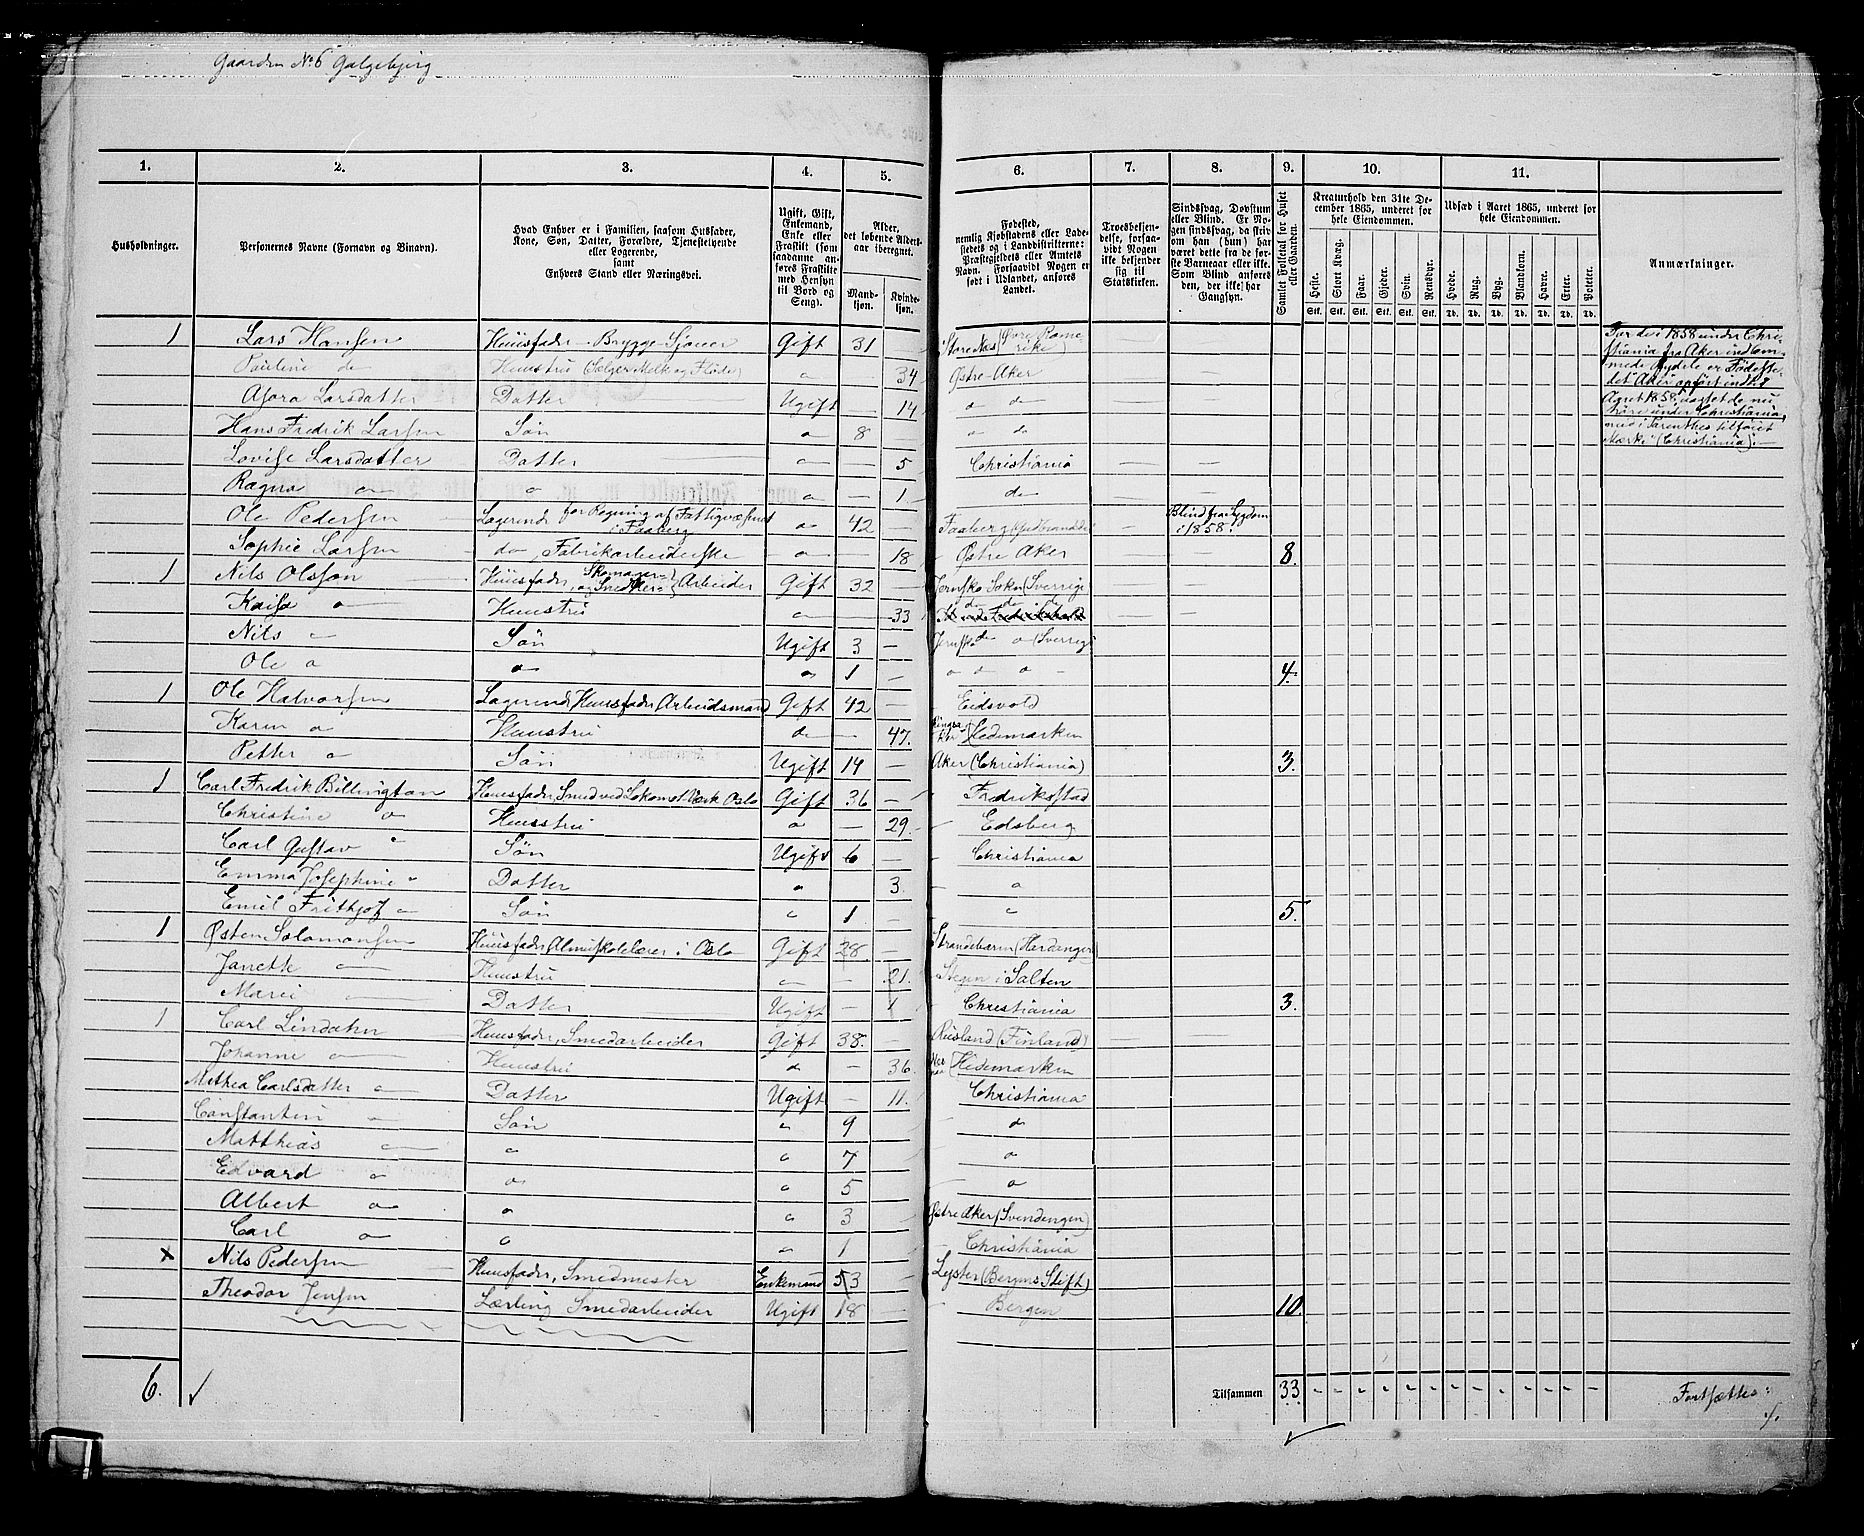 Gaarden No 6 Galgebjerg
1. 2. 3. 4. 5. 6. 7. 8. 9. 10. 11.
Husholdninger. Personernes Navne (Fornavn og Binavn). Hvad Enhver er i Familien, saasom Husfader, Kone, Søn, Datter, Forældre, Tjenestetyende eller Logerende, samt Enhvers Stand eller Næringsvei. Ugift, Gift, Enkemand, Enke eller Fraskilt (som saadanne anføres Fraskilte med Hensyn til Bord og Seng). Alder, det løbende Aldersaar iberegnet. Mandkjøn. Kvindekjøn.
Fødested, nemlig Kjøbstadens eller Ladestedets og i Landdistrikterne: Præstegjeldets eller Amtets Navn. Forsaavidt Nogen er født i Udlandet, anføres Landet. Troesbekjendelse, forsaavidt Nogen ikke bekjender sig til Statskirken. Sindssvag, Døvstum eller Blind. Er Nogen sindssvag, da skriv om han (hun) har været dette fra de første Barneaar eller ikke. Som Blind anføres den, der ikke har Gangsyn. Samlet Folketal for Huset eller Gaarden. Kreaturhold den 31te December 1865, underet for hele Eiendommen. Udsæd i Aaret 1865, underet for hele Eiendommen. Anmærkninger.
Heste. Stort Kvæg. Faar. Gjeder. Svin. Rensdyr. Hvede. Rug. Byg. Blandkorn. Havre. Erter. Poteter.
Stk. Stk. Stk. Stk. Stk. Stk. Td. Td. Td. Td. Td. Td. Td.
1 Lars Hansen Huusfader Brygge-Sjouer Gift 31 Store Næs (Øvre Romerike
Pauline do Huustru (Sælger Melk og Fløde) " 34 Østre Aker
Larsdatter Datter Ugift 14 " do
Hans Fredrik Larsen Søn " 8 " do
Lovise Larsdatter Datter " 5 Christiania
Ragna " " " 1 do
Ole Pedersen Logerende for Regning af Fattigvæsenet i Faaberg " 42 Faaberg Blind fra Sygdom i 1858.
Sophie Larsen do, Fabrikarbeiderske " 18 Østre Aker 8.
1 Nils Olsson Huusfader, Skomager og Smed Arbeider Gift 32 Jernsko Sokn (Sverrige
Kaisa " Huustru " 33 do do do
Nils " Søn Ugift 3 Jernsko do " (Sverrige
Ole " " " 1 " " " 4.
1 Ole Halvorsen Logerende Huusfader Arbeidsmand Gift 42 Eidsvold
Karen " Huustru do 47. Ringsaker (Hedemarken
Petter " Søn Ugift 14 Aker (Christiania) 3.
1 Carl Fredrik Billington Huusfader, Smed ved Lokomot. Værk Oslo Gift 36 Fredriksstad
Christine " Huusstru " 29. Edsberg
Carl Gustav " Søn Ugift 6 Christiania
Emma Josephine " Datter " 3. "
Emil Frithjof " Søn " 1. " 5.
1 Østen Salomonsen Huusfader, Almueskolelærer i Oslo Gift 28 Strandebarm (Hardanger)
Janette " Huustru " 21. Stegen i Salten
Marei " Datter Ugift 1 Christiania 3.
1 Carl Lindahn Huusfader, Smedarbeider Gift 38. Rusland (Finland)
Johanne " Huustru " 36. (Hedemarken
Mathea Carlsdatter " Datter Ugift 11. Christiania
Constantin " Søn " 9 "
Matthias " " " 7 "
Edvard " " " 5 "
Albert " " " 3 Østre Aker (Svendengen)
Carl " " " 1 Christiania
x Nils Pedersen Huusfader, Smedmester Enkemand 53 Lyster (Bergens Stift)
Theodor Jensen Lærling Smedarbeider Ugift 18 Bergen 10.
6. Tilsammen 33 Fortsættes
Før de i 1858 under Christiania fra Aker indlemmede Bydele er Fødestedet Aker anført indtil Aaret 1858, uagtet de nu høre under Christiania, med i Parenthes tilføiet Mærke (Christiania).